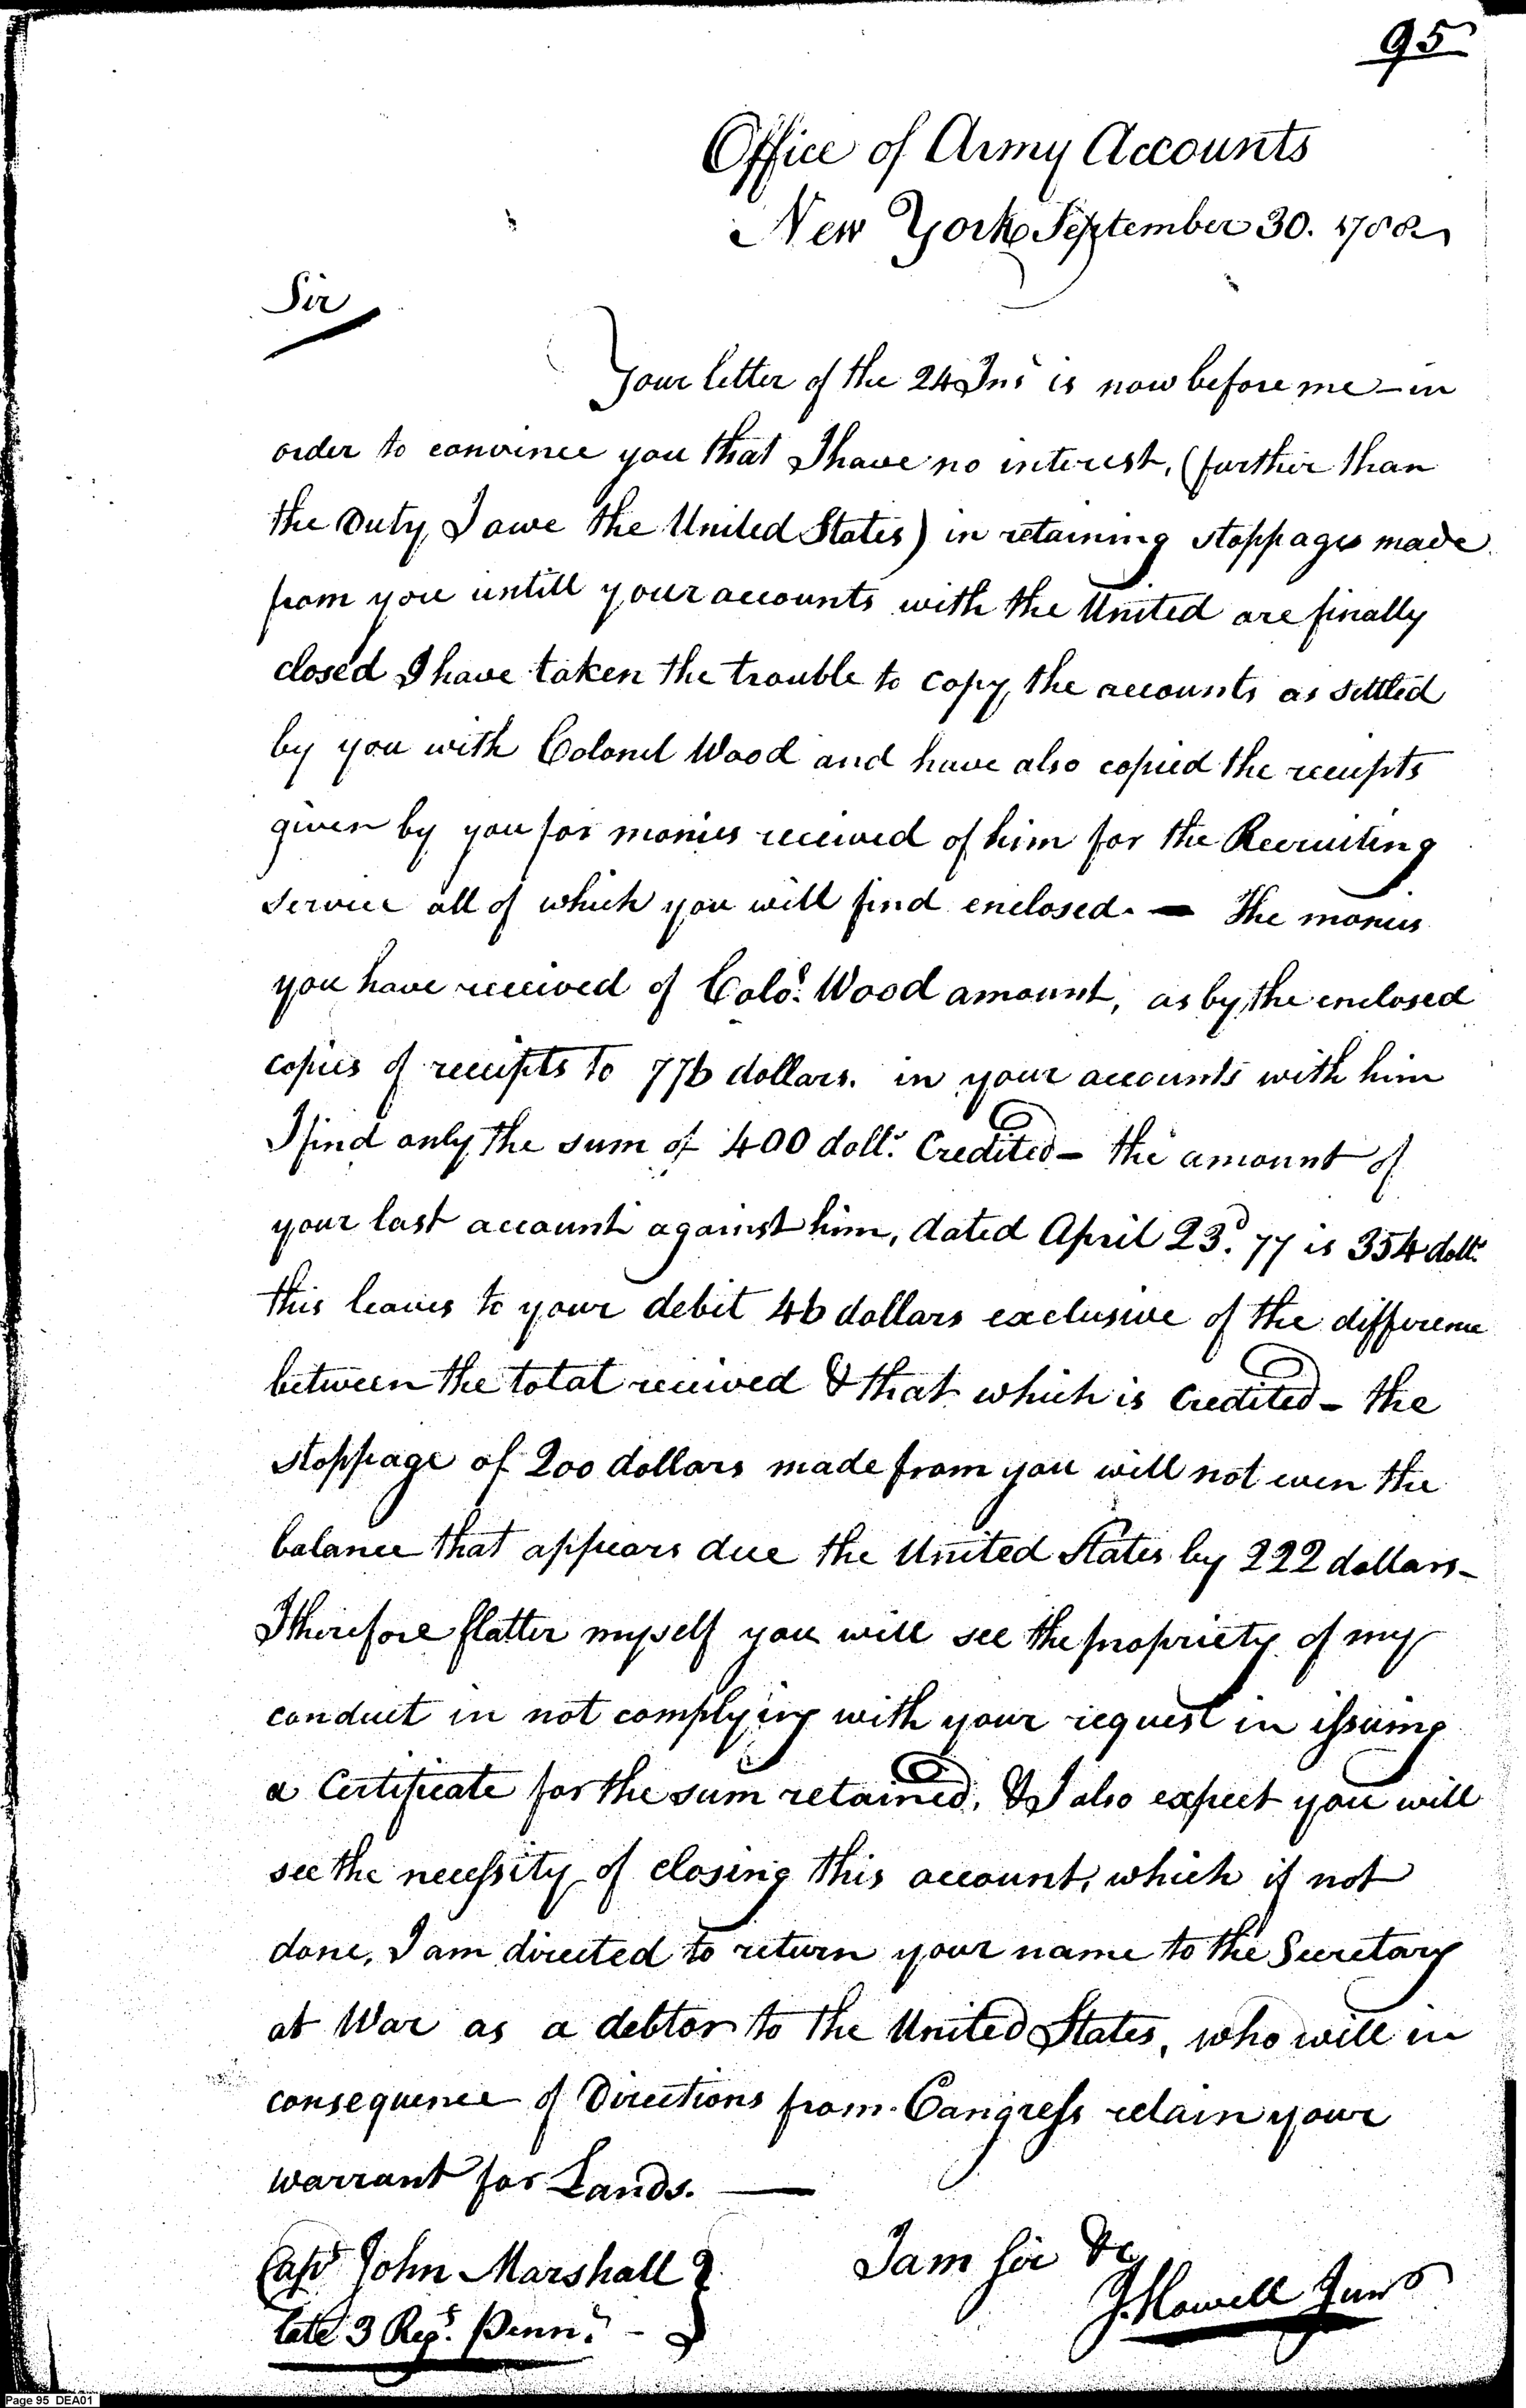 95
Office of Army Accounts
New York September 30. 1788
Sir
Your letter of the 24 Ins.t is now before me – in
order to convince you that I have no interest, (further than
the Duty I owe the United States) in retaining stoppages made
from you untill your accounts with the United are finally
closed I have taken the trouble to copy the accounts as settled
by you with Colonel Wood and have also copied the receipts
given by you for monies received of him for the Recruiting
service all of which you will find enclosed. — The monies
you have received of Colo. Wood amount, as by the enclosed
copies of receipts to 776 dollars. in your accounts with him
I find only the sum of 400 doll.s Credited – the amount of
your last account against him, dated April 23.d 77 is 354 doll.s
this leaves to your debit 46 dollars exclusive of the difference
between the total received & that which is Credited – the
stoppage of 200 dollars made from you will not even the
balance that appears due the United States by 222 dollars –
I therefore flatter myself you will see the propriety of my
conduct in not complying with your request in issuing
a Certificate for the sum retained, & I also expect you will
see the necessity of closing this account, which if not
done, I am directed to return your name to the Secretary
at War as a debtor to the United States, who will in
consequence of Directions from Congress retain your
warrant for Lands. —
Cap.t John Marshall
late 3 Reg.t Penn.a –
I am Sir &c
J. Howell Jun.r
Page 95 DEA01